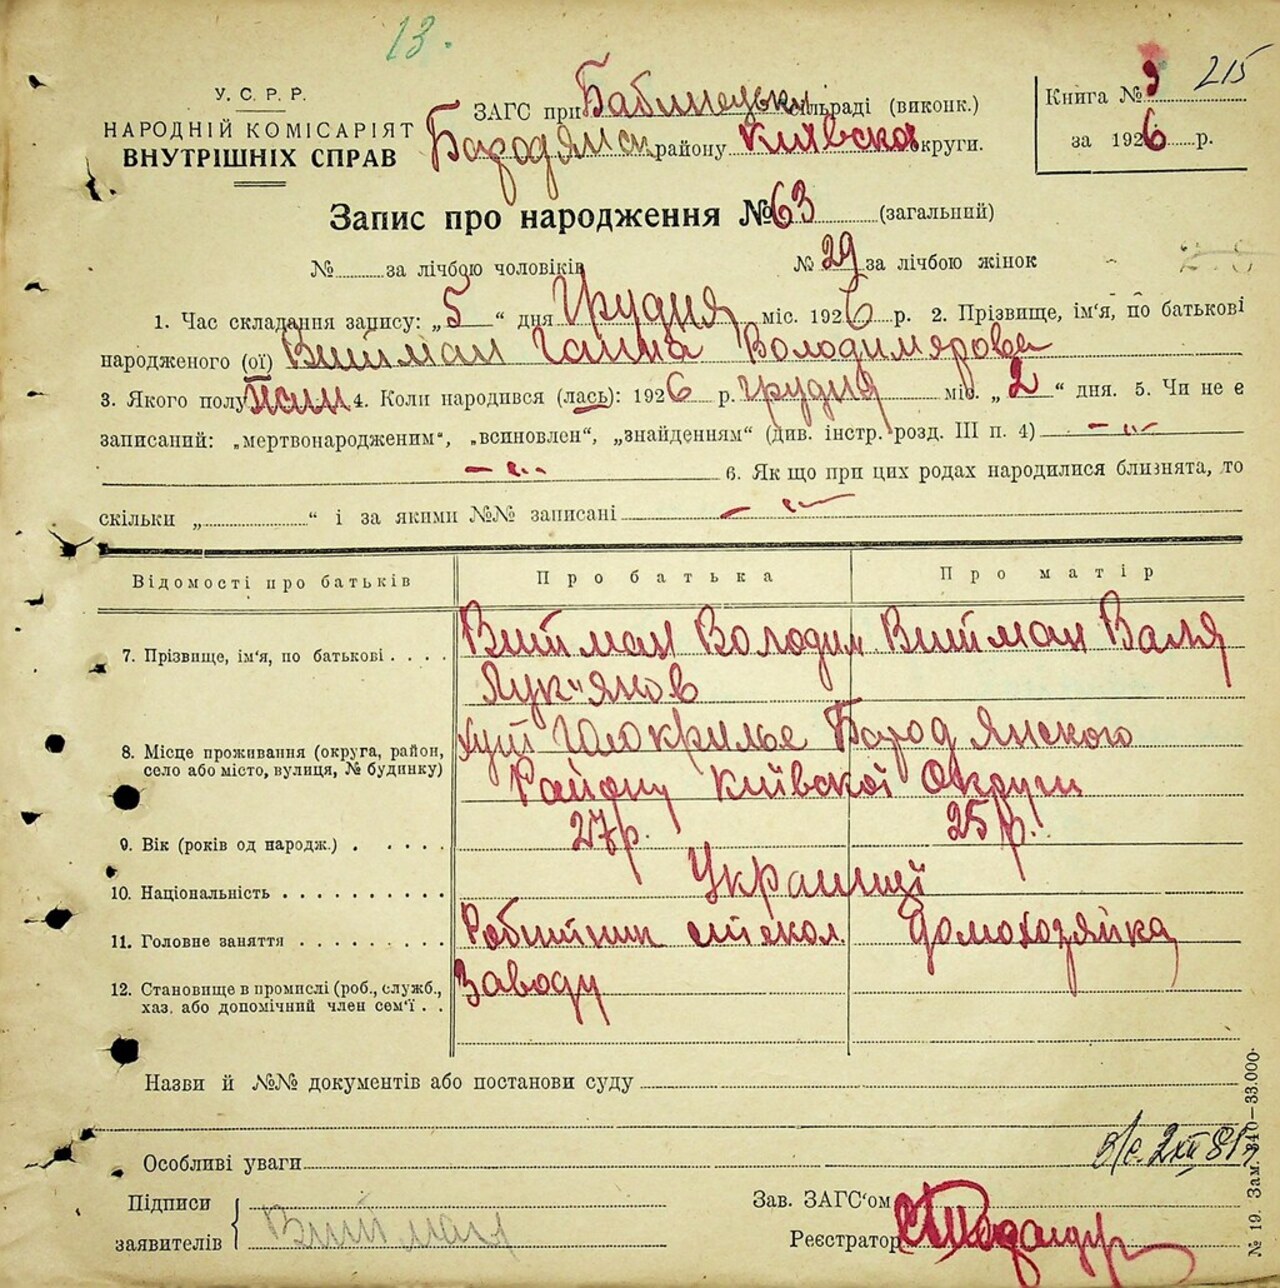 13.
215
У. С. Р. Р.
НАРОДНІЙ КОМІСАРІЯТ
ВНУТРІШНІХ СПРАВ
ЗАГС при Бабинецьки сільраді (виконк.)
Бородянск району Київска округи.
Книга № 9
за 1926 р.
Запис про народження № 63 (загальний)
№ за лічбою чоловіків № 29 за лічбою жінок
1. Час складання запису: „ 5 “ дня Грудня міс. 1926 р. 2. Прізвище, ім'я, по батькові
народженого (ої) Витман Ганна Володимирове
3. Якого полу 4. Коли народився (лась): 1926 р. грудня міс. „ 2 “ дня. 5. Чи не є
записаний: „мертвонародженим“, „всиновлен“, „знайденням“ (див. інстр. розд. III п. 4) – „–
– „– 6. Як що при цих родах народилися близнята, то
скільки „ “ і за якими №№ записані – „–
Відомості про батьків Про батька Про матір
7. Прізвище, ім'я, по батькові Витман Володим. Витман Валя
Лук"янов
8. Місце проживання (округа, район, село або місто, вулиця, № будинку) хут Голокрилье Бородянского
Району Київской Округи
9. Вік (років од народж.) 27 р. 25 р.
10. Національність Украинці
11. Головне заняття Робитник стекол. Домохозяйка
12. Становище в промислі (роб., служб., Заводу
хаз. або допомічний член сем'ї
Назви й №№ документів або постанови суду
Особливі уваги
2 XII 81
Підписи
заявителів Витман
Зав. ЗАГС'ом
Реєстратор
№ 19. Зам. 340—33.000.